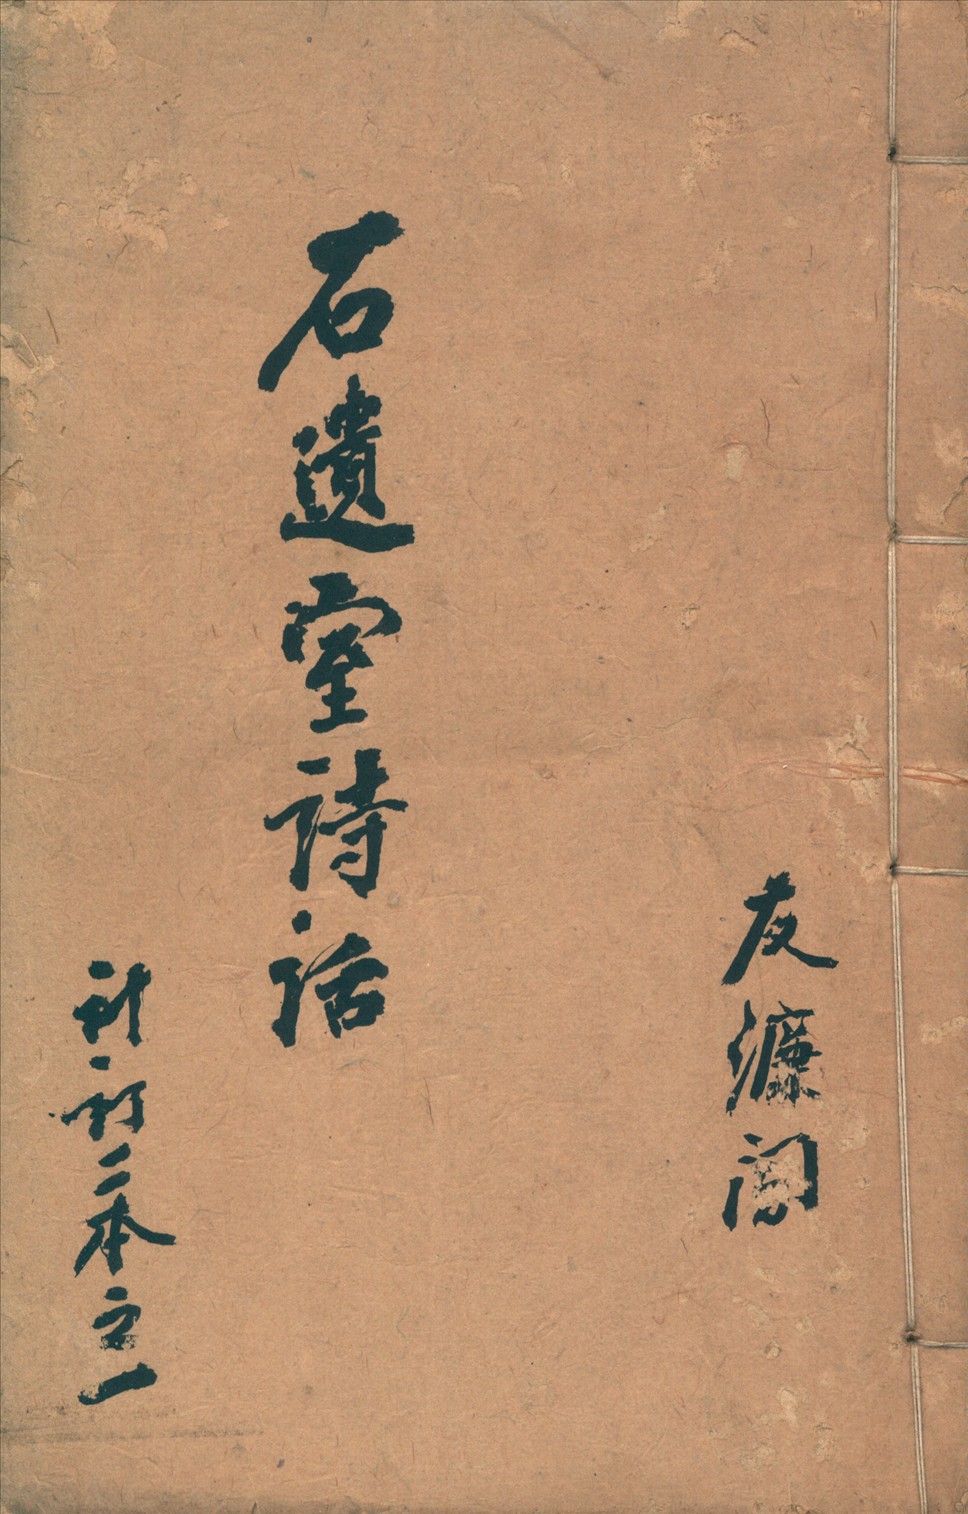 友濂
石遺室詩話
新訂二本之一